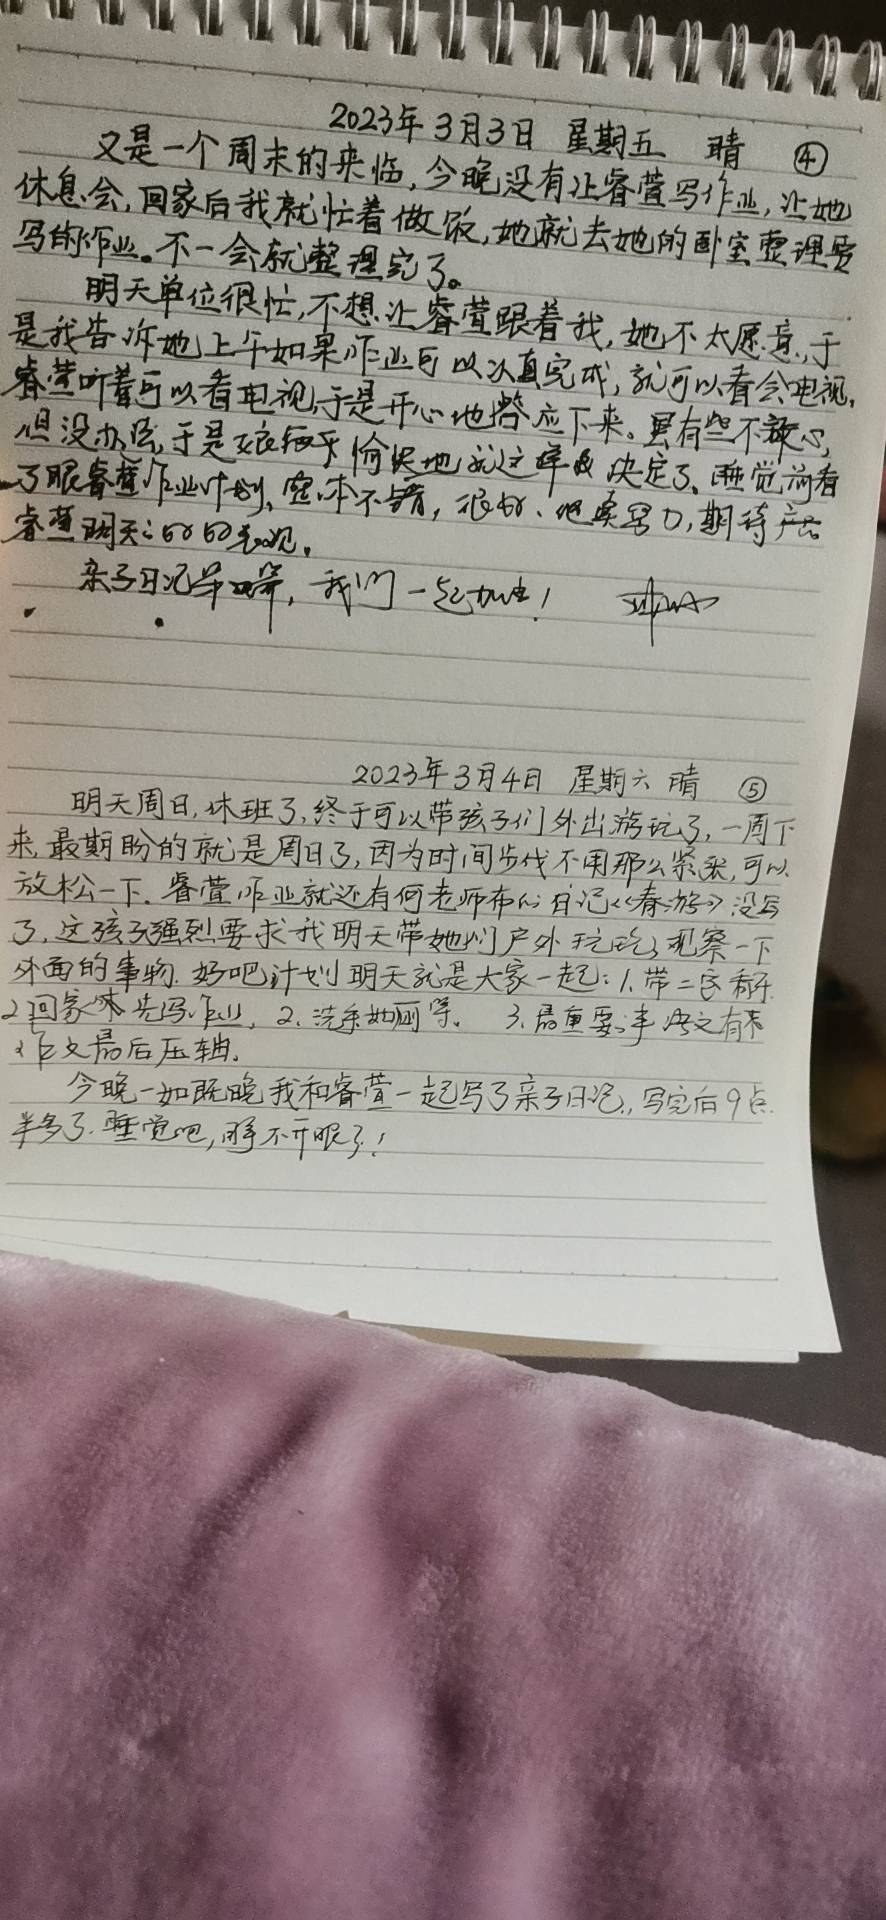 2023年3月3日 星期五 晴 ④
又是一个周末的来临,今晚没有让睿萱写作业,让她
休息会,回家后我就忙着做饭,她就去她的卧室整理要
写的作业。不一会就整理完了。
明天单位很忙,不想让睿萱跟着我,她不太愿意,于
是我告诉她上午如果作业可以认真完成,就可以看会电视,
睿萱听着可以看电视,于是开心地答应下来。虽有些不放心,
但没办法,于是娘俩 愉快地就这样 决定了。睡觉前看
了眼睿萱作业计划, 不错,很好、继续努力,期待
睿萱明天的 表现。
亲子日记 ,我们一起加油!
2023年3月4日 星期六 晴 ⑤
明天周日,休班了,终于可以带孩子们外出游玩了,一周下
来,最期盼的就是周日了,因为时间步伐不用那么紧张,可以
放松一下。睿萱作业就还有何老师布的日记《春游》没写
了,这孩子强烈要求我明天带她们户外玩玩,观察一下
外面的事物.好吧计划明天就是大家一起:1.带二宝
回家 先写作业, 2.洗 等。 3.最重要 语文
作文最后压轴.
今晚一如既晚我和睿萱一起写了亲子日记,写完后9点
半多了.睡觉吧,睁不开眼了!